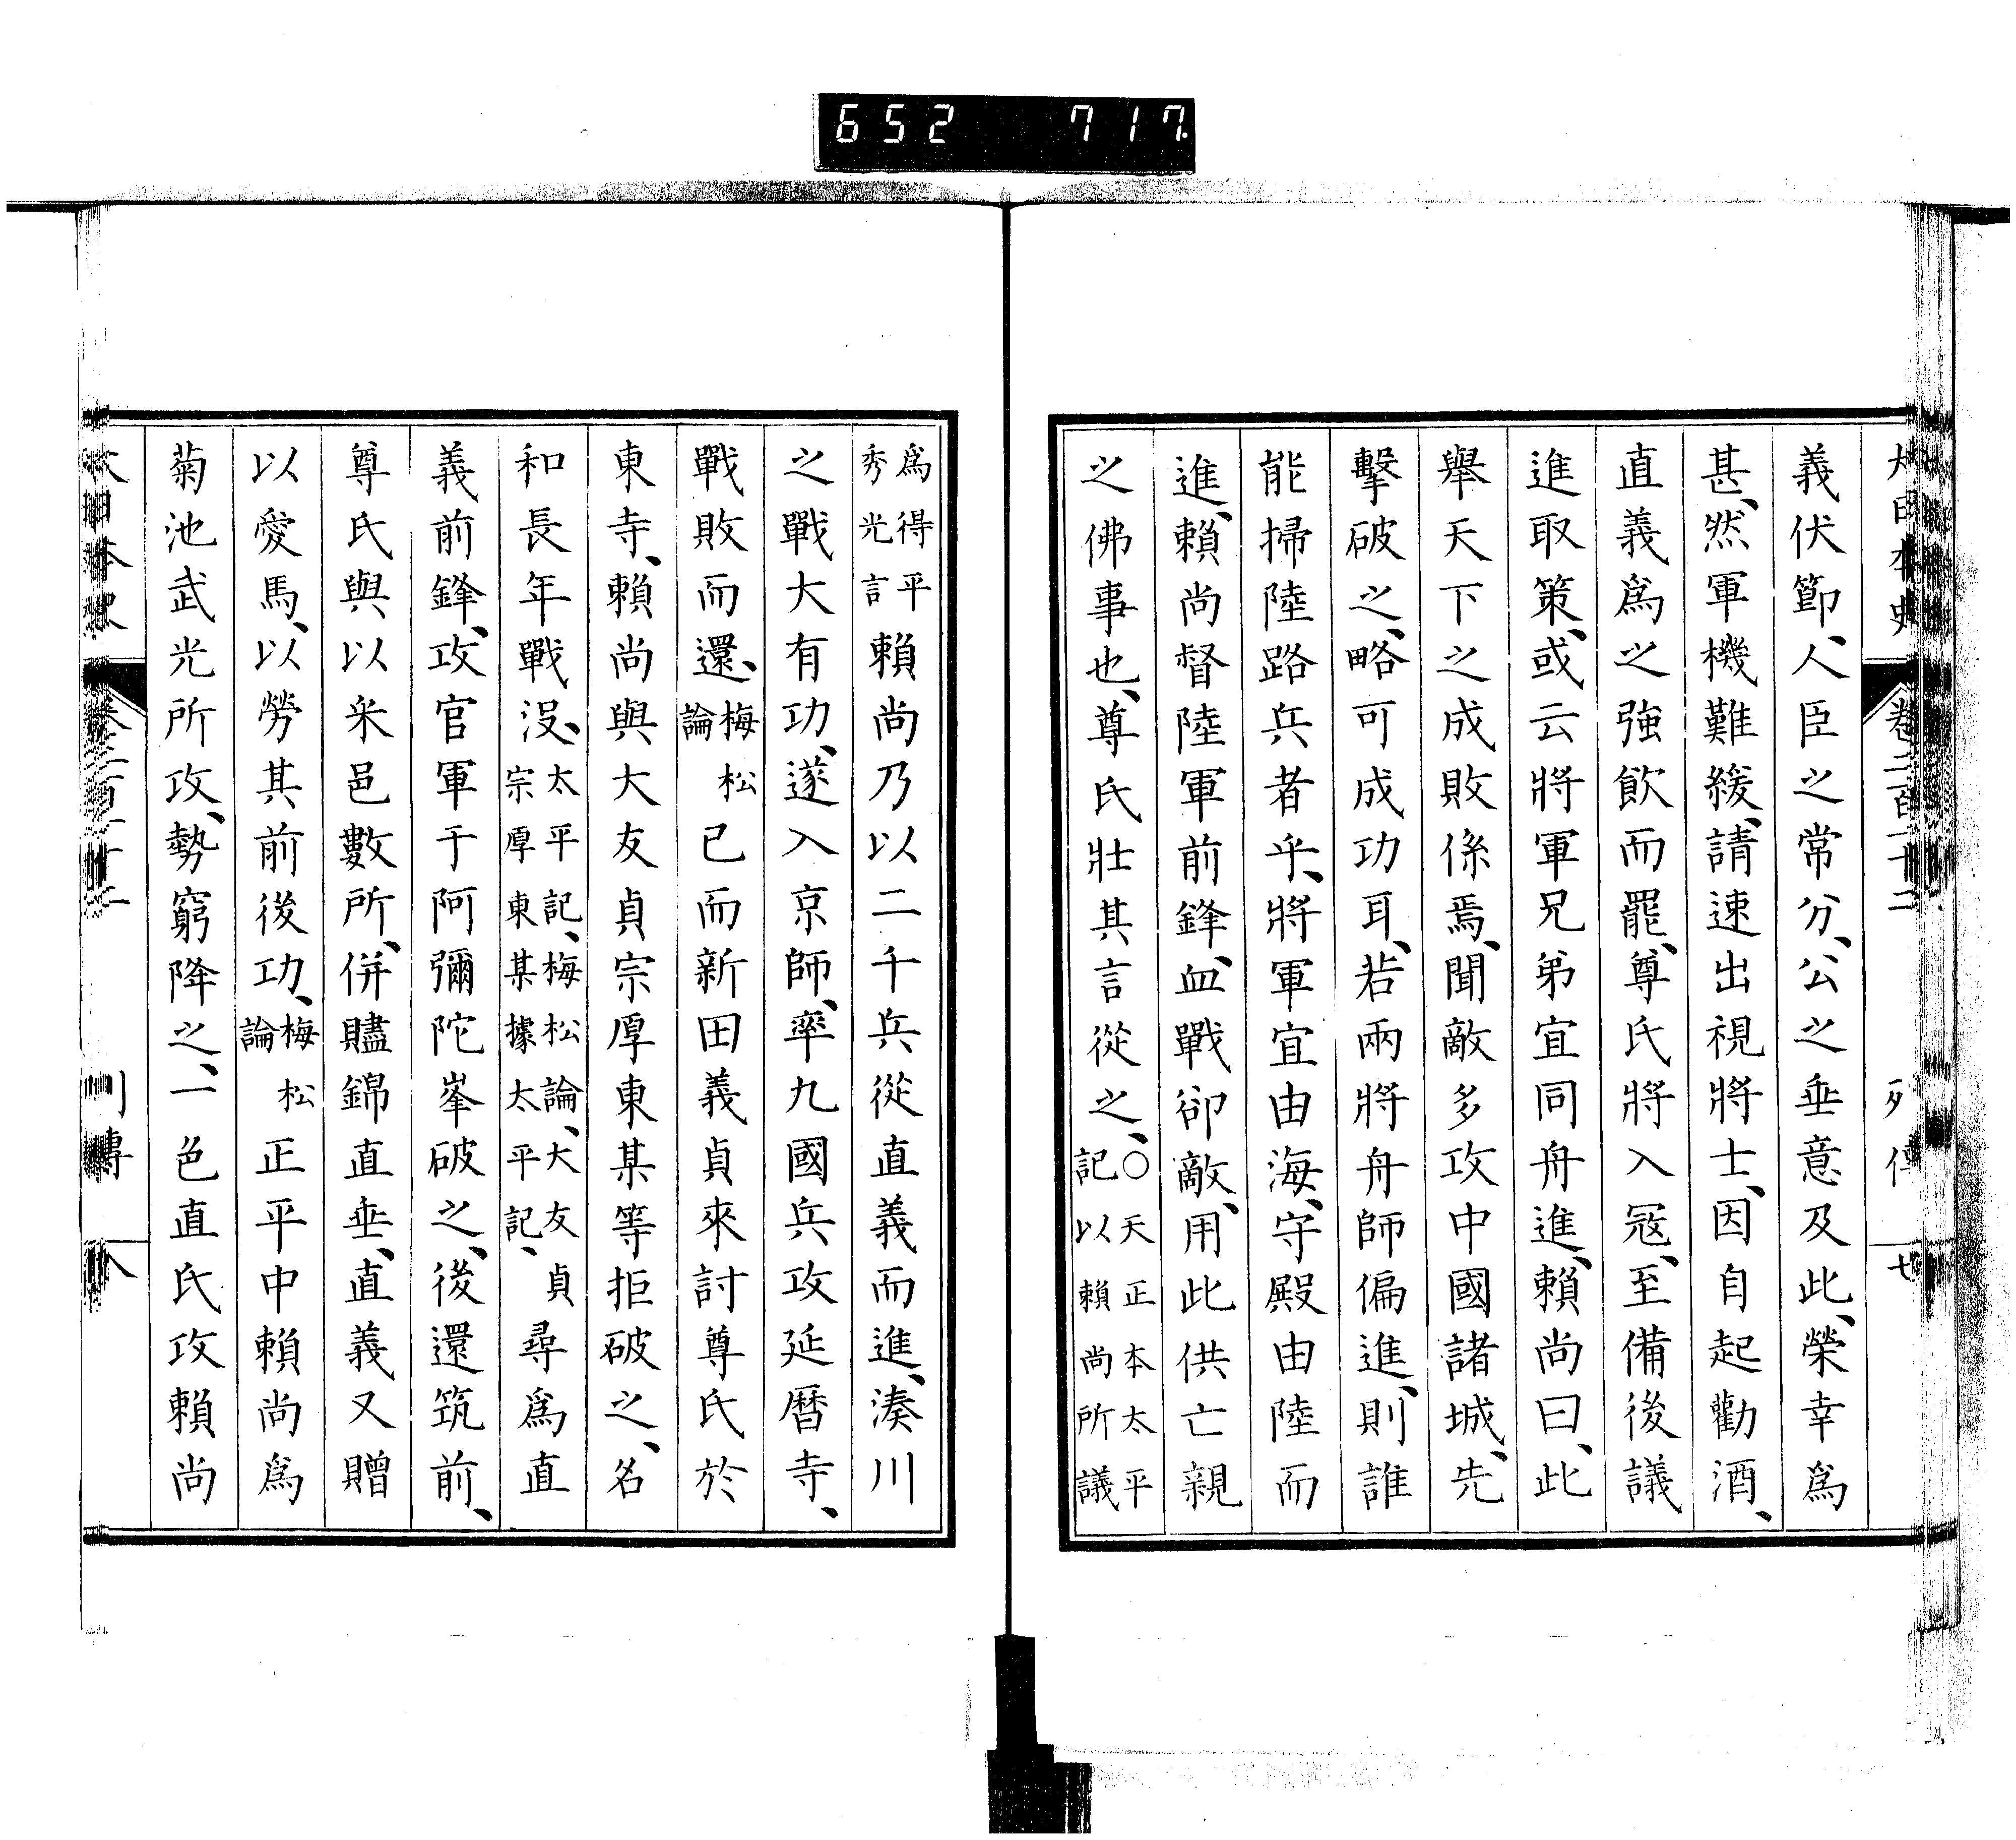 652 717
大日本史 卷二百二十二 列傳 七
義伏節、人臣之常分、公之垂意及此、榮幸爲
甚、然軍機難緩、請速出視將士、因自起勸酒、
直義爲之強飲而罷、尊氏將入寇、至備後議
進取策、或云將軍兄弟宜同舟進、賴尚曰、此
舉天下之成敗係焉、聞敵多攻中國諸城、先
擊破之、略可成功耳、若兩將舟師偏進、則誰
能掃陸路兵者乎、將軍宜由海、守殿由陸而
進、賴尚督陸軍前鋒、血戰卻敵、用此供亡親
之佛事也、尊氏壯其言從之、○天正本太平記以賴尚所議
爲得平秀光言賴尚乃以二千兵從直義而進、湊川
之戰大有功、遂入京師、率九國兵攻延曆寺、
戰敗而還、梅松論已而新田義貞來討尊氏於
東寺、賴尚與大友貞宗厚東某等拒破之、名
和長年戰沒、太平記、梅松論、大友貞宗厚東某據太平記、尋爲直
義前鋒、攻官軍于阿彌陀峯破之、後還筑前、
尊氏與以采邑數所、併贐錦直垂、直義又贈
以愛馬、以勞其前後功、梅松論正平中賴尚爲
菊池武光所攻、勢窮降之、一色直氏攻賴尚
大日本史 列傳 八